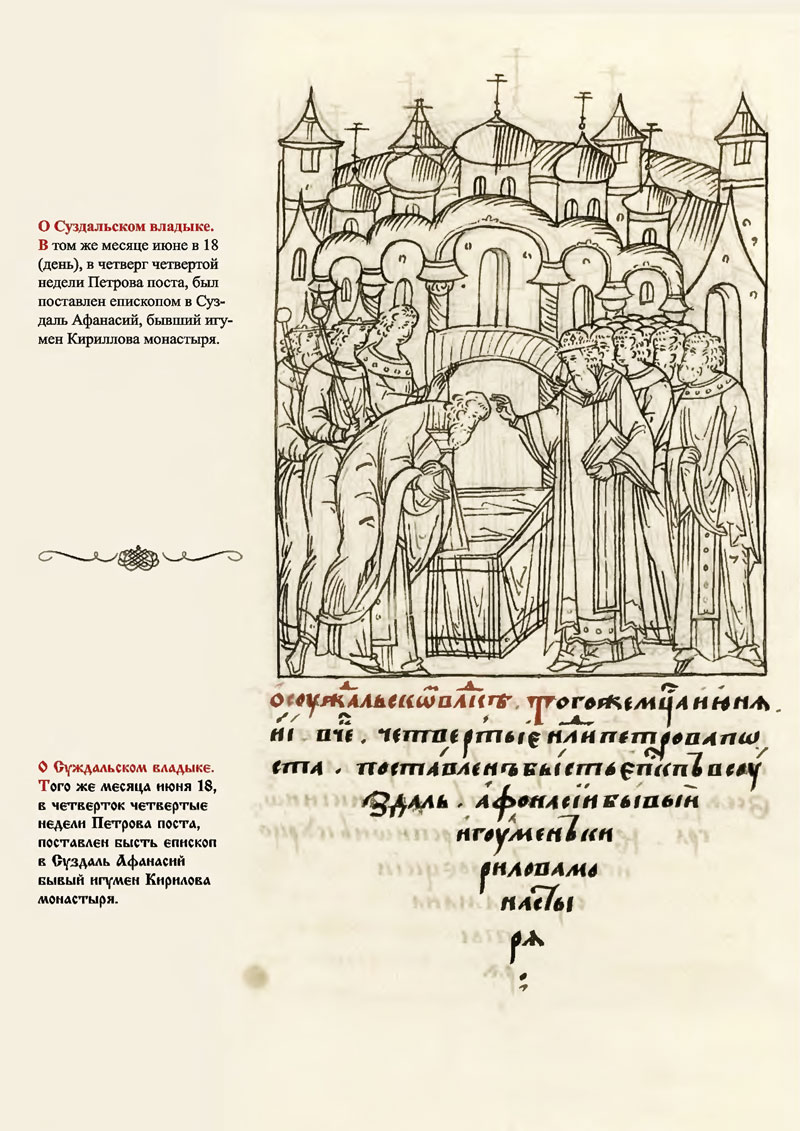 О Суздальском владыке.
В том же месяце июне в 18
(день), в четверг четвертой
недели Петрова поста, был
поставлен епископом в Суз-
даль Афанасий, бывший игу-
мен Кириллова монастыря.
О Суждальском владыке.
Того же месяца июня 18,
в четверток четвертые
недели Петрова поста,
поставлен бысть епископ
в Суздаль Афанасий
бывый игумен Кирилова
монастыря.
ѡ соуждальскѡⷨ влⷣкѣ. Тогожемⷭ҇цаиюнѧ.
иі. вчⷦ҇е. четвертыѥнлⷣипетровапѡ
ста. поставленъбыстьепⷭ҇кпъвсоу
здаль. афонасіибывыи
игоуменъки
риловамо
насты
рѧ